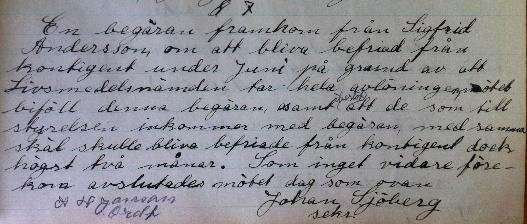 § 7
En begäran framkom från Sigfrid
Andersson, om att bliva befriad från
kontigent under Juni på grund av att
Livsmedelsnämden tar hela avlöningen, mötet
biföll denna begäran, samt att de som till
styrelsen inkommer med begäran, med samma
skäl skulle bliva befriade från kontigent dock
högst två månar. Som inget vidare före-
kom avslutades mötet dag som ovan
Johan Sjöberg
Ordf. sekr